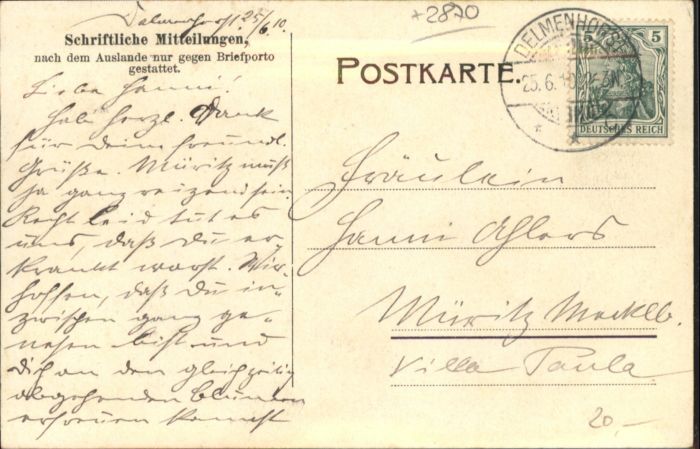 Delmenhorst. 25/6.10.
+2870
Schriftliche Mitteilungen,
nach dem Auslande nur gegen Briefporto
gestattet.
POSTKARTE.
DELMENHORST
25.6.10
5 5
DEUTSCHES REICH
Liebe Hanni!
Hab herzl. Dank
für Deine freundl.
Grüße. Müritz muß
ja ganz reizend sein.
Recht leid tut es
uns, daß Du er-
krankt warst. Wir
hoffen, daß Du in-
zwischen ganz ge-
nesen bist und
Dich an den gleichzeitig
abgehenden Blumen
erfreuen kannst
Fräulein
Hanni Ahlers
Müritz Mecklb.
Villa Paula
20,-